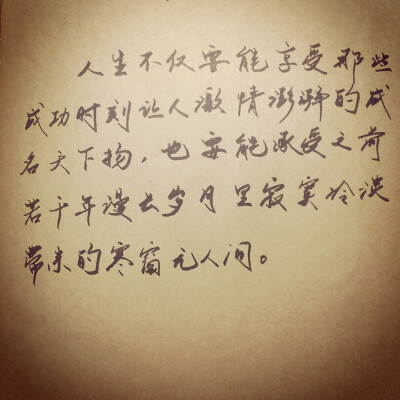 人生不仅要能享受那些
成功时刻让人激情澎湃的成
名天下扬，也要能承受之前
若干年漫长岁月里寂寞冷淡
带来的寒窗无人问。